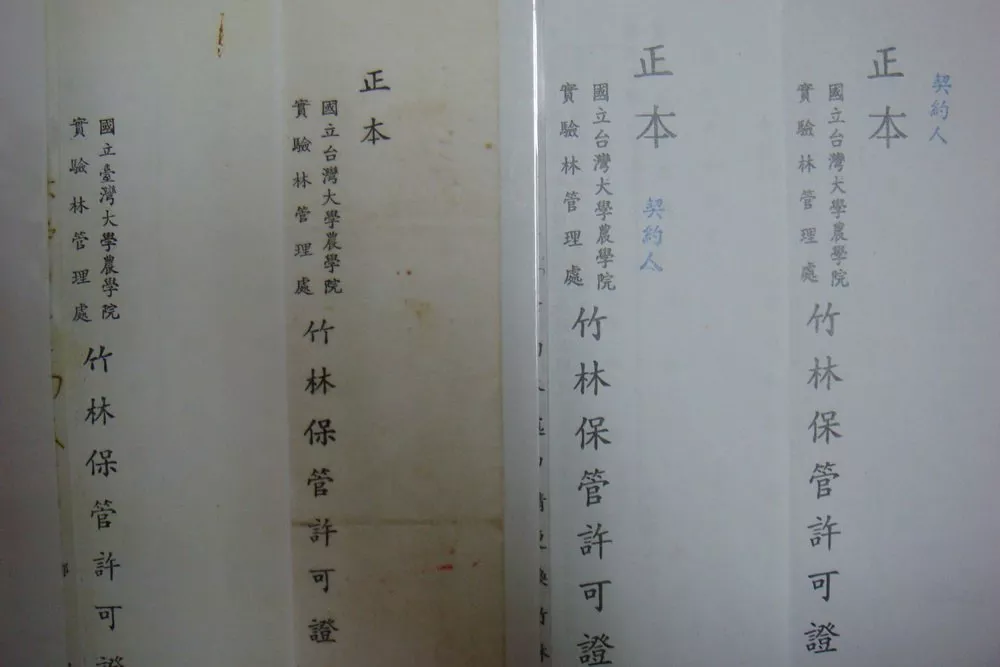 契約人
正本
國立台灣大學農學院
實驗林管理處
竹林保管許可證
正本
契約人
國立台灣大學農學院
實驗林管理處
竹林保管許可證
正本
國立台灣大學農學院
實驗林管理處
竹林保管許可證
國立臺灣大學農學院
實驗林管理處
竹林保管許可證